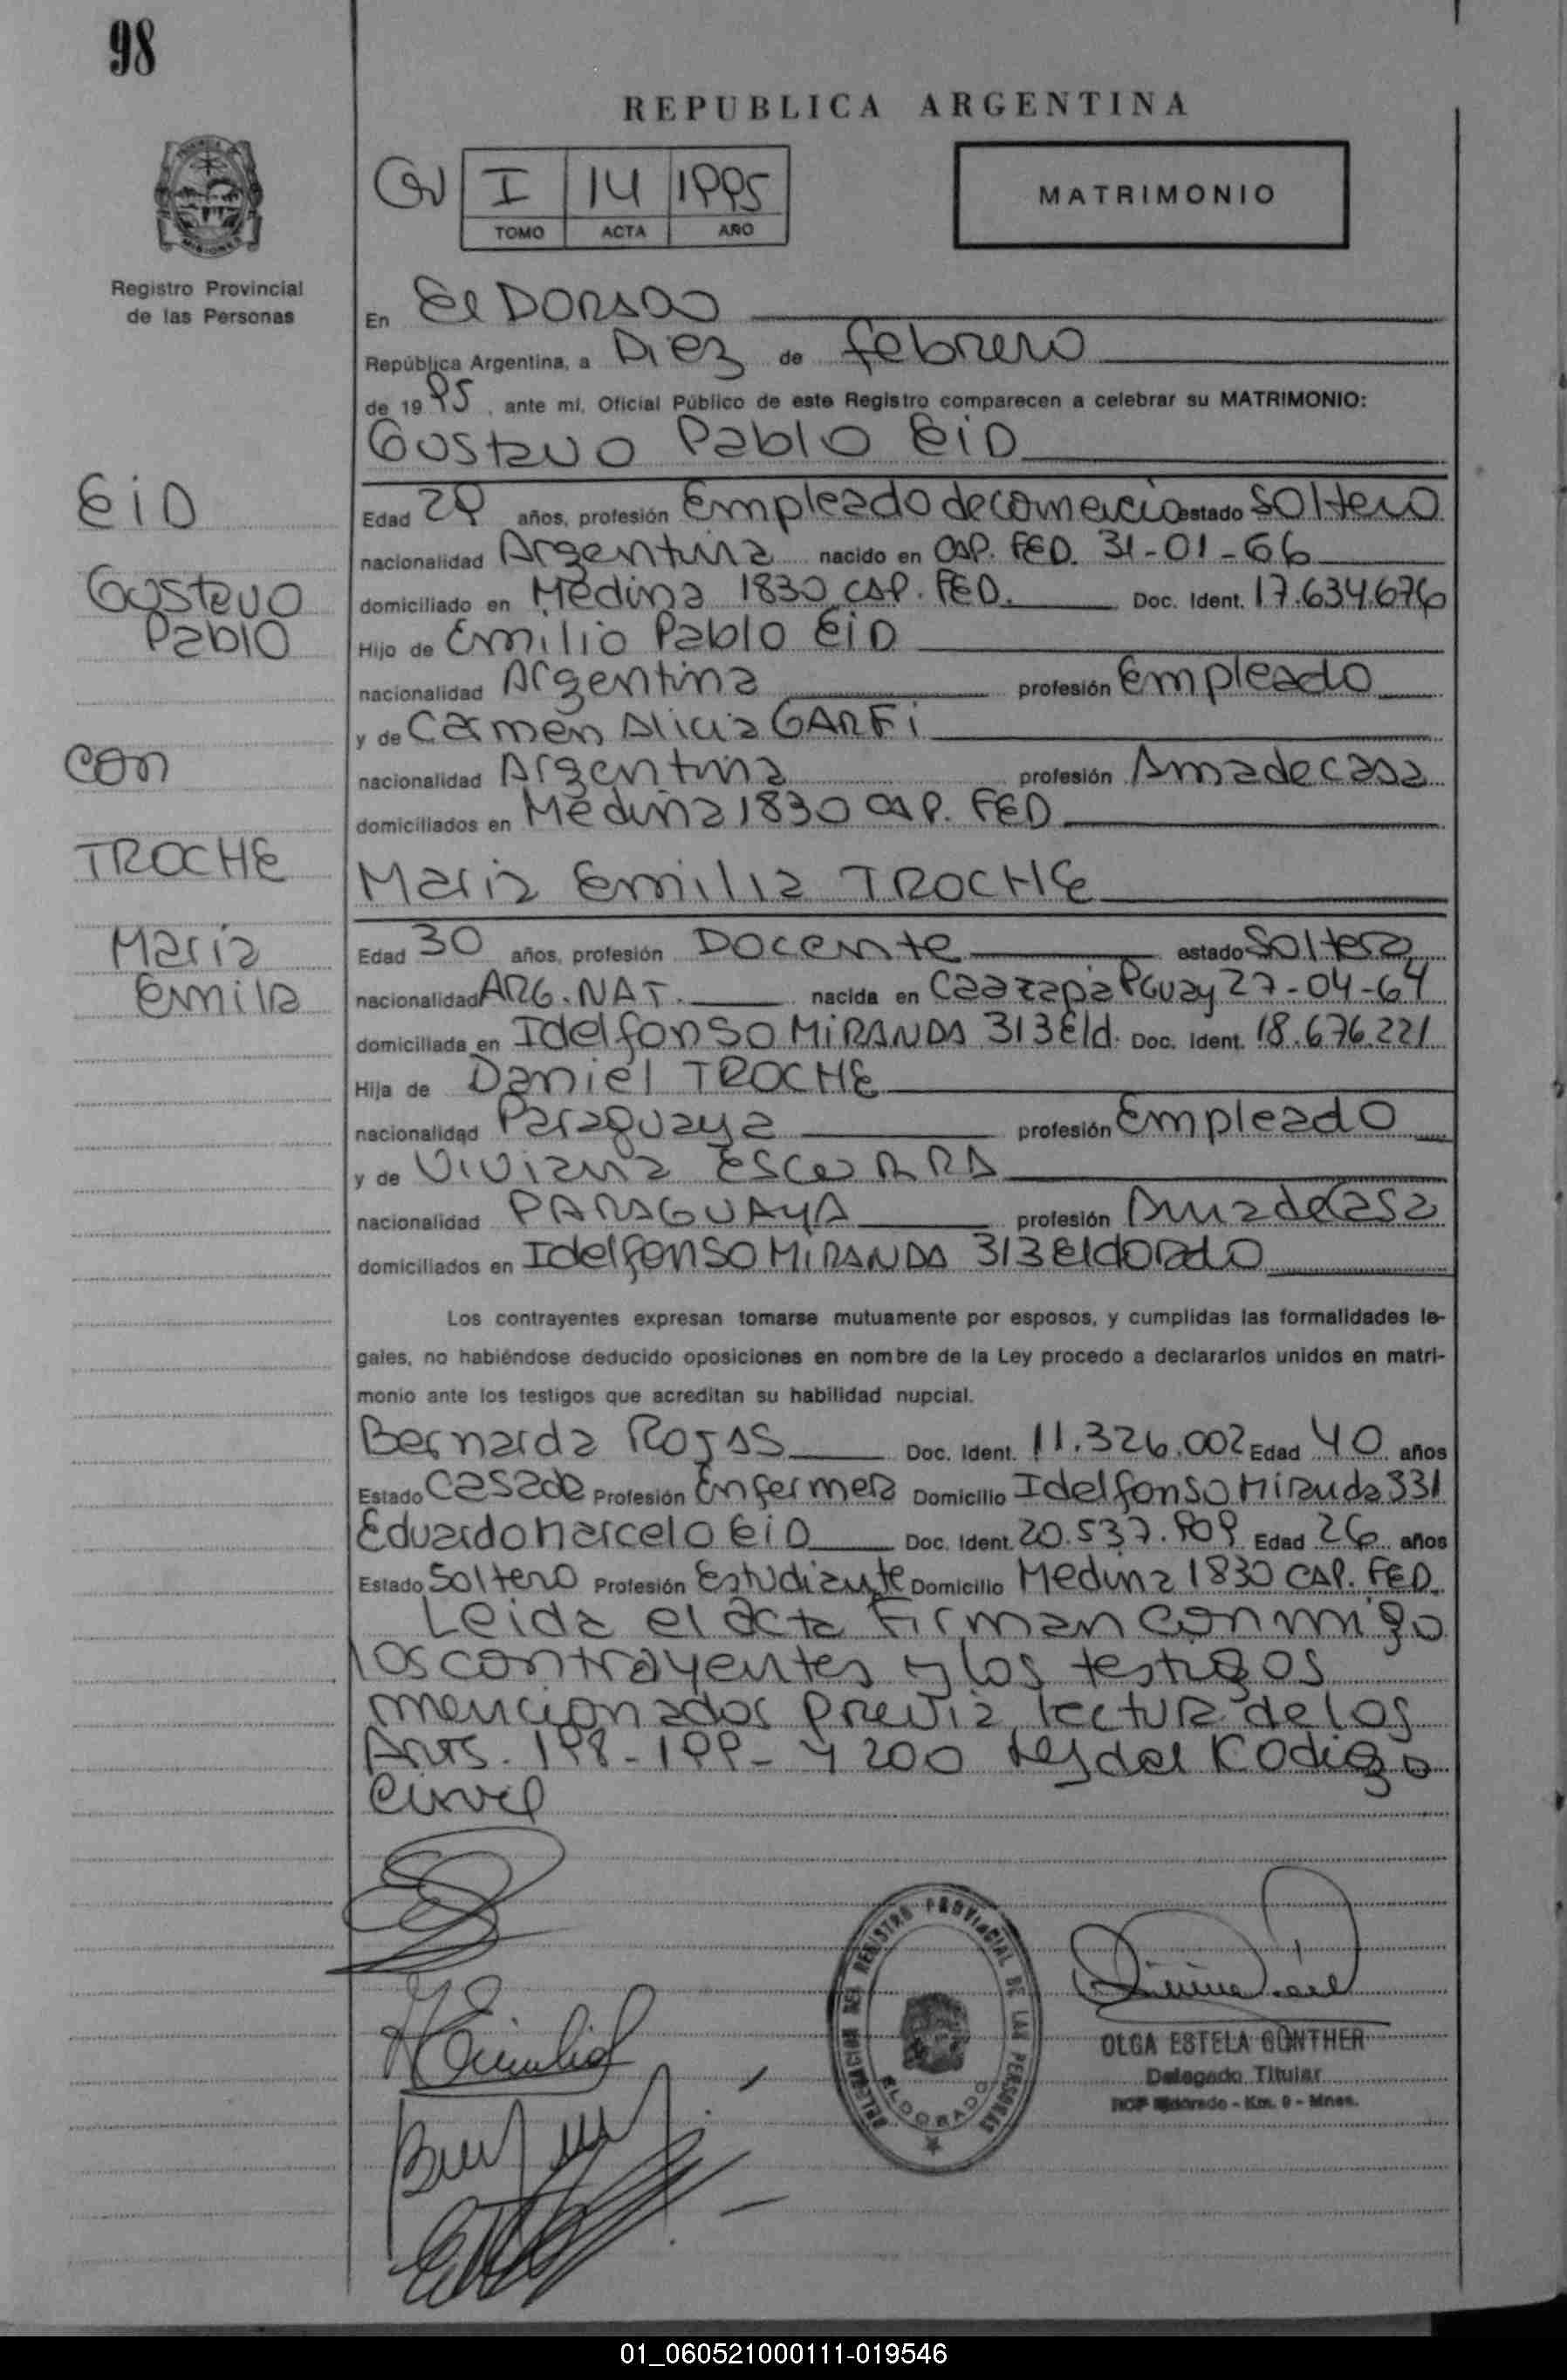 98
REPUBLICA ARGENTINA
I 14 1995
TOMO ACTA AÑO
MATRIMONIO
Registro Provincial
de las Personas
En ElDORADO
República Argentina, a Diez de febrero
de 1995, ante mí, Oficial Público de este Registro comparecen a celebrar su MATRIMONIO:
Gustavo Pablo EiD
EiD
Edad 29 años, profesión Empleado de comercio estado Soltero
nacionalidad Argentina nacido en CAP. FED. 31-01-66
Gustavo
domiciliado en Medina 1830 CAP. FED. Doc. Ident. 17.634.676
Pablo
Hijo de Emilio Pablo EiD
nacionalidad Argentina profesión Empleado
y de Carmen Alicia GARFi
con
nacionalidad Argentina profesión Ama de casa
domiciliados en Medina 1830 CAP. FED
TROCHE
Maria Emilia TROCHE
María
Edad 30 años, profesión Docente estado Soltera
Emilia
nacionalidad ARG. NAT. nacida en Caazapá PGuay 27-04-64
domiciliada en Idelfonso MiRANDA 313 Eld. Doc. Ident. 18.676.221
Hija de Daniel TROCHE
nacionalidad Paraguaya profesión Empleado
y de Viviana
nacionalidad PARAGUAYA profesión Ama de Casa
domiciliados en Idelfonso MiRANDA 313 Eldorado
Los contrayentes expresan tomarse mutuamente por esposos, y cumplidas las formalidades le-
gales, no habiéndose deducido oposiciones en nombre de la Ley procedo a declararlos unidos en matri-
monio ante los testigos que acreditan su habilidad nupcial.
Bernarda ROJAS Doc. Ident. 11.326.002 Edad 40 años
Estado Casada Profesión Enfermera Domicilio Idelfonso Miranda 331
Eduardo Marcelo EiD Doc. Ident. 20.537.909 Edad 26 años
Estado Soltero Profesión Estudiante Domicilio Medina 1830 CAP. FED.
Leida el acta Firman conmigo
los contrayentes y los testigos
mencionados previa lectura de los
Arts. 198-199- y 200 del Kodigo
Civil
DELEGACION DEL REGISTRO PROVINCIAL DE LAS PERSONAS
ELDORADO
OLGA ESTELA GÜNTHER
Delegado Titular
RCP Eldorado - Km. 9 - Mnes.
01_060521000111-019546